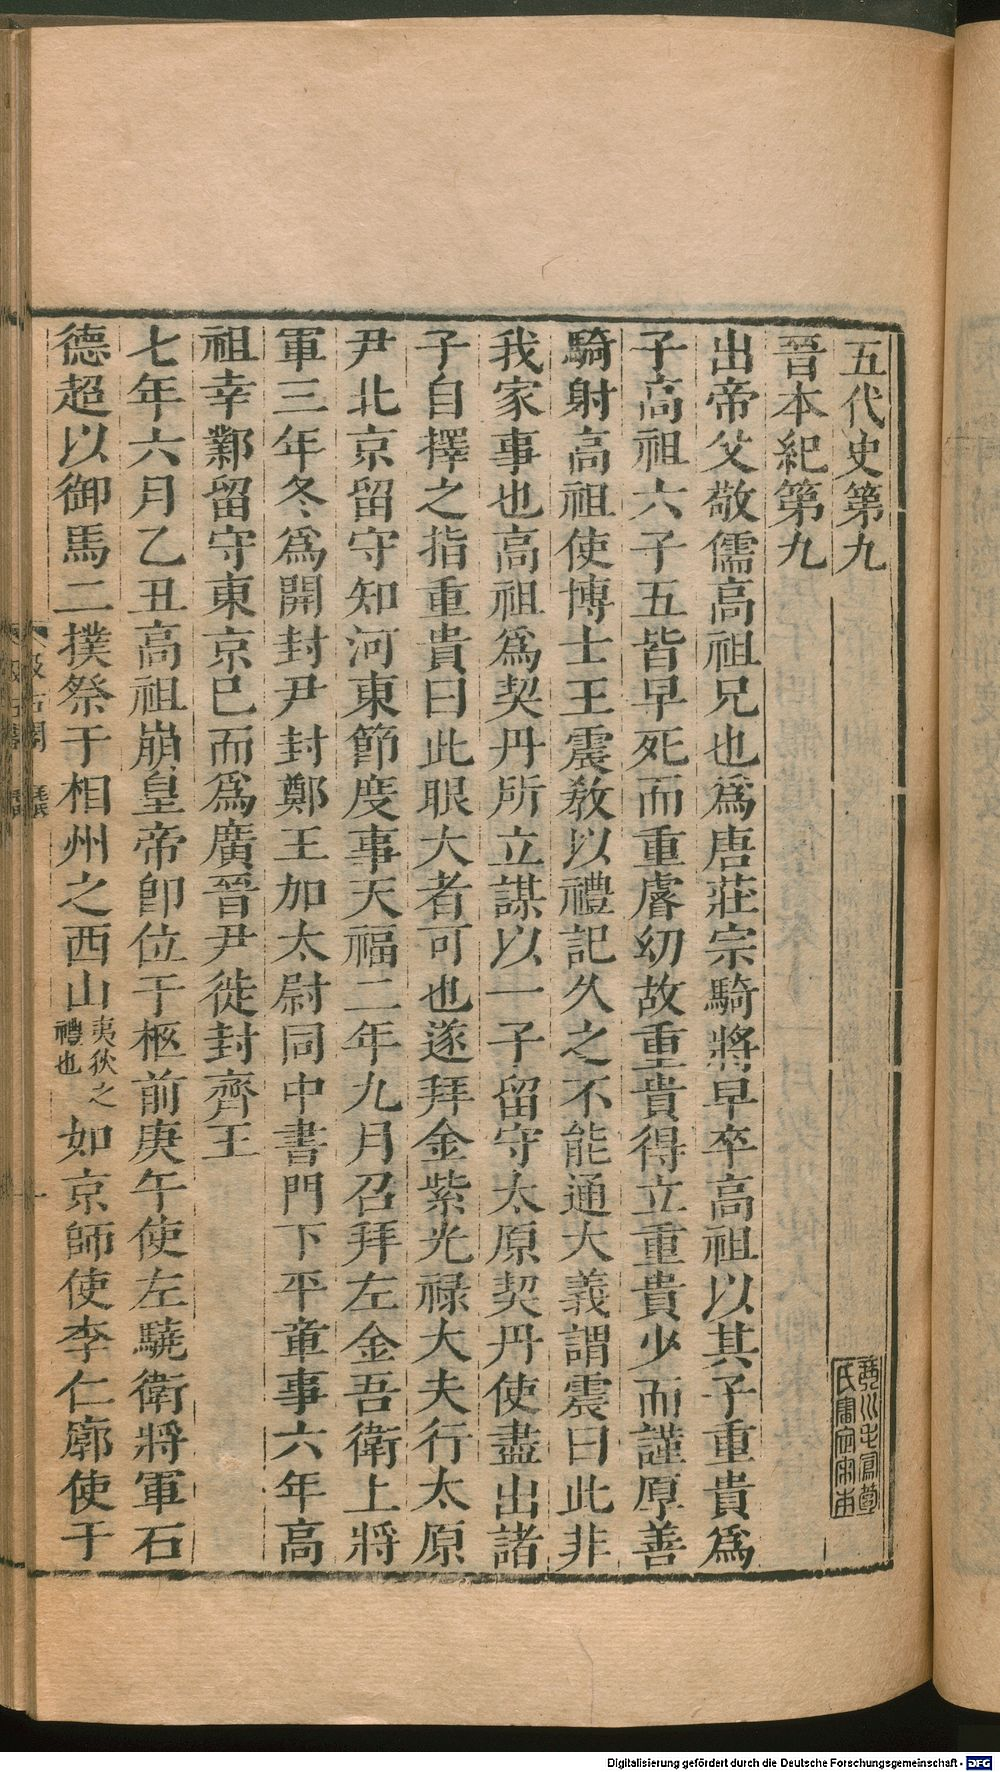 五代史第九
晉本紀第九
出帝父敬儒高祖兄也爲唐莊宗騎將早卒高祖以其子重貴爲
子高祖六子五皆早死而重睿幼故重貴得立重貴少而謹厚善
騎射高祖使博士王震敎以禮記久之不能通大義謂震曰此非
我家事也高祖爲契丹所立謀以一子留守太原契丹使盡出諸
子自擇之指重貴曰此眼大者可也遂拜金紫光祿大夫行太原
尹北京留守知河東節度事天福二年九月召拜左金吾衛上將
軍三年冬爲開封尹封鄭王加太尉同中書門下平章事六年高
祖幸鄴留守東京已而爲廣晉尹徙封齊王
七年六月乙丑高祖崩皇帝卽位于柩前庚午使左驍衛將軍石
德超以御馬二撲祭于相州之西山夷狄之禮也如京師使李仁廓使于
Digitalisierung gefördert durch die Deutsche Forschungsgemeinschaft - DFG